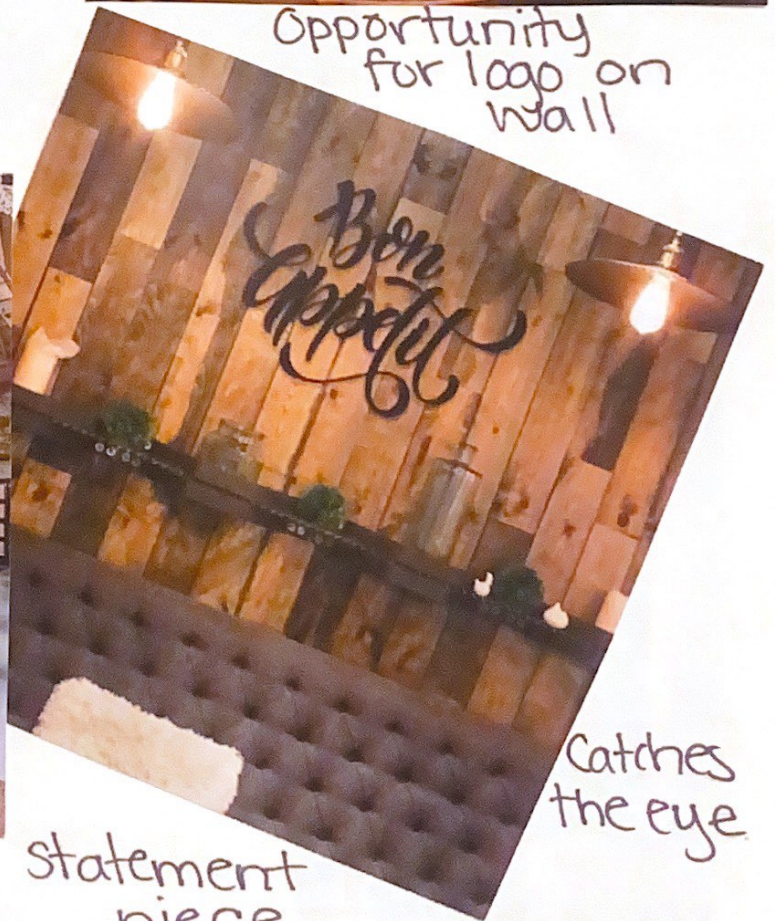 Opportunity
for logo on
wall
Bon
appetit
Catches
the eye
Statement
piece